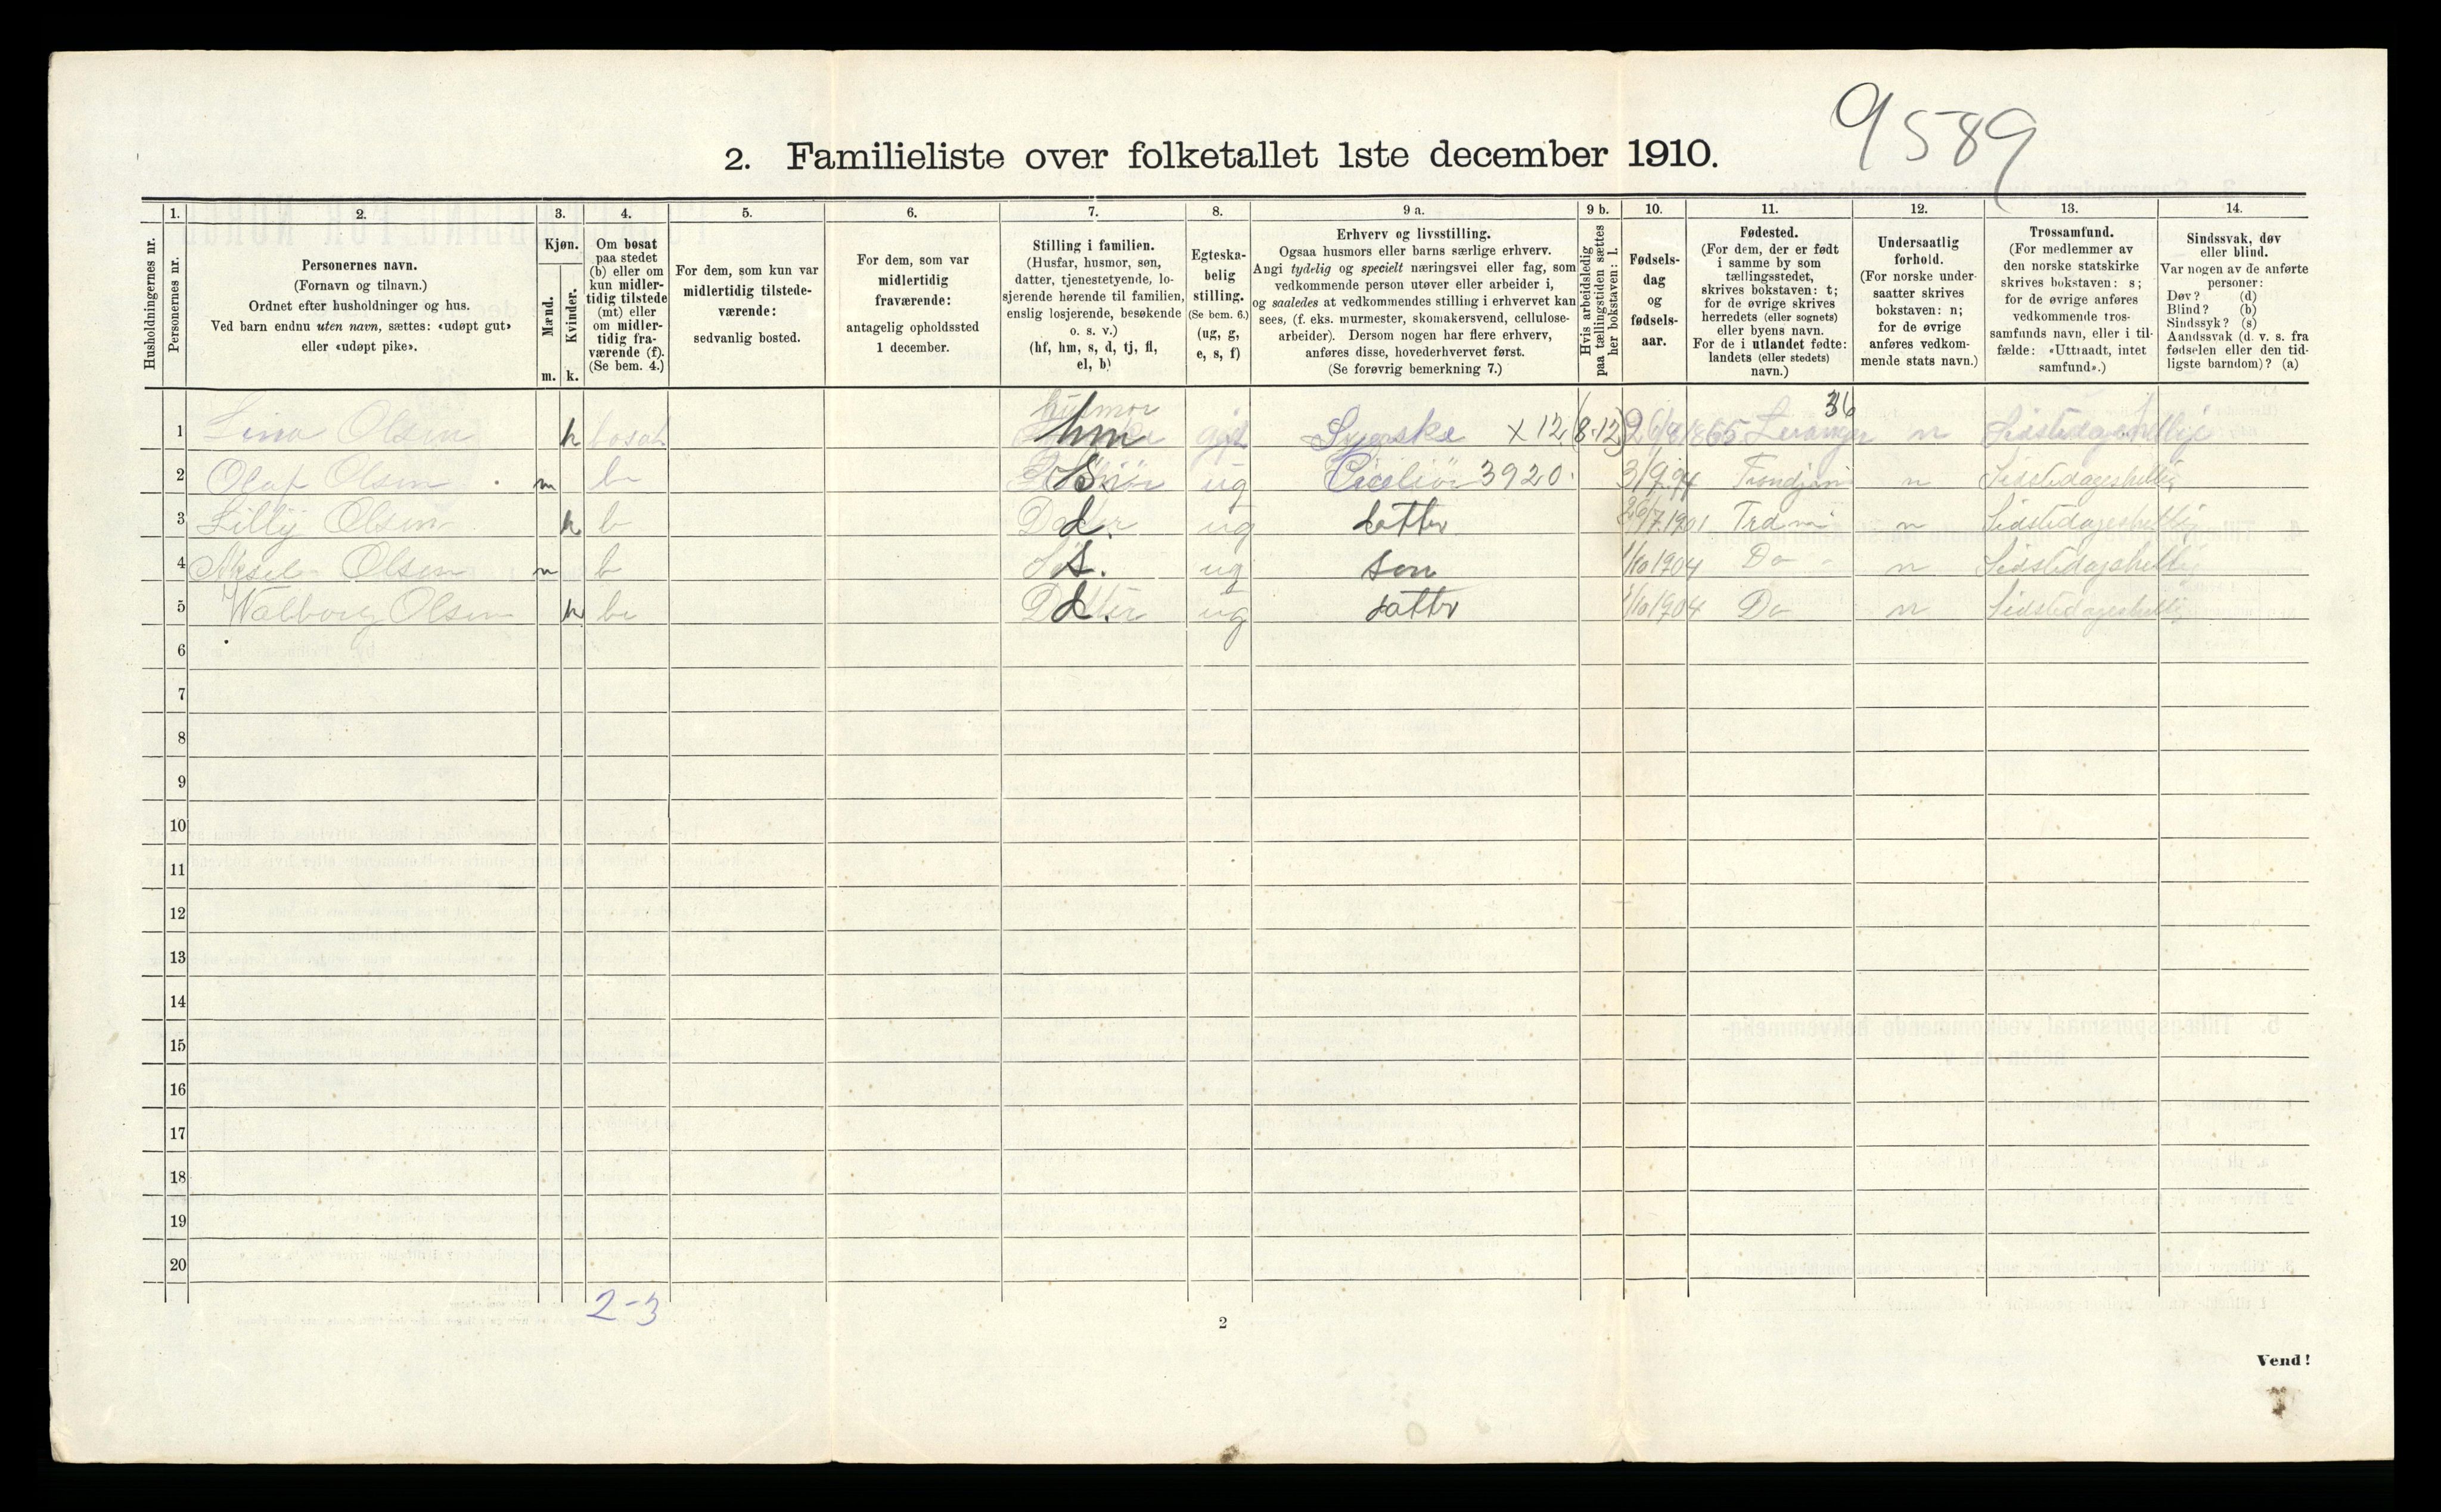 9589
2. Familieliste over folketallet 1ste december 1910.
Husholdningernes nr.
1.
Personernes nr.
2.
Personernes navn.
(Fornavn og tilnavn.)
Ordnet efter husholdninger og hus.
Ved barn endnu uten navn, sættes: «udøpt gut»
eller «udøpt pike».
3.
Kjøn.
Mænd.
Kvinder.
m. k.
4.
Om bosat
paa stedet
(b) eller om
kun midler-
tidig tilstede
(mt) eller
om midler-
tidig fra-
værende (f).
(Se bem. 4.)
5.
For dem, som kun var
midlertidig tilstede-
værende:
sedvanlig bosted.
6.
For dem, som var
midlertidig
fraværende:
antagelig opholdssted
1 december.
7.
Stilling i familien.
(Husfar, husmor, søn,
datter, tjenestetyende, lo-
sjerende hørende til familien,
enslig losjerende, besøkende
o. s. v.)
(hf, hm, s, d, tj, fl,
el, b)
8.
Egteska-
belig
stilling.
(Se bem. 6.)
(ug, g,
e, s, f)
9 a.
Erhverv og livsstilling.
Ogsaa husmors eller barns særlige erhverv.
Angi tydelig og specielt næringsvei eller fag, som
vedkommende person utøver eller arbeider i,
og saaledes at vedkommendes stilling i erhvervet kan
sees, (f. eks. murmester, skomakersvend, cellulose-
arbeider). Dersom nogen har flere erhverv,
anføres disse, hovederhvervet først.
(Se forøvrig bemerkning 7.)
9 b.
Hvis arbeidsledig
paa tællingstiden sættes
her bokstaven: l.
10.
Fødsels-
dag
og
fødsels-
aar.
11.
Fødested.
(For dem, der er født
i samme by som
tællingsstedet,
skrives bokstaven: t;
for de øvrige skrives
herredets (eller sognets)
eller byens navn.
For de i utlandet fødte:
landets (eller stedets)
navn.)
12.
Undersaatlig
forhold.
(For norske under-
saatter skrives
bokstaven: n;
for de øvrige
anføres vedkom-
mende stats navn.)
13.
Trossamfund.
(For medlemmer av
den norske statskirke
skrives bokstaven: s;
for de øvrige anføres
vedkommende tros-
samfunds navn, eller i til-
fælde: «Uttraadt, intet
samfund».)
14.
Sindssvak, døv
eller blind.
Var nogen av de anførte
personer:
Døv? (d)
Blind? (b)
Sindssyk? (s)
Aandssvak (d. v. s. fra
fødselen eller den tid-
ligste barndom)? (a)
husmor 36
1 Lina Olsen k bosat hm Syerske x 12 (8-12) 1865 Levanger n Sidstedageshellije
2 Olaf Olsen m b s ug 3920 3/9 94 Trondjem n Sidstedageshellig
3 Lilly Olsen k b Datter d. ug datter 26/7.1901 n Sidstedageshellig
4 Aksel Olsen m b s. ug søn 1/10 1904 Do n Sidstedageshellig
5 Walborg Olsen k b Datter d. ug datter 1/10 1904 Do n Sidstedageshellig
6
7
8
9
10
11
12
13
14
15
16
17
18
19
20
2-3
2
Vend!